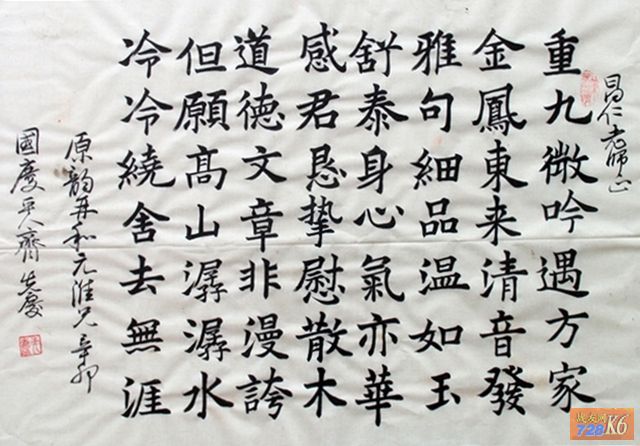 昌仁老师正
重九微吟遇方家
金鳳東来清音發
雅句細品温如玉
舒泰身心氣亦華
感君恳挚慰散木
道德文章非漫誇
但願高山潺潺水
冷冷繞舍去無涯
原韵再和元淮兄辛卯
國慶 齋 慶
战友网
728K6